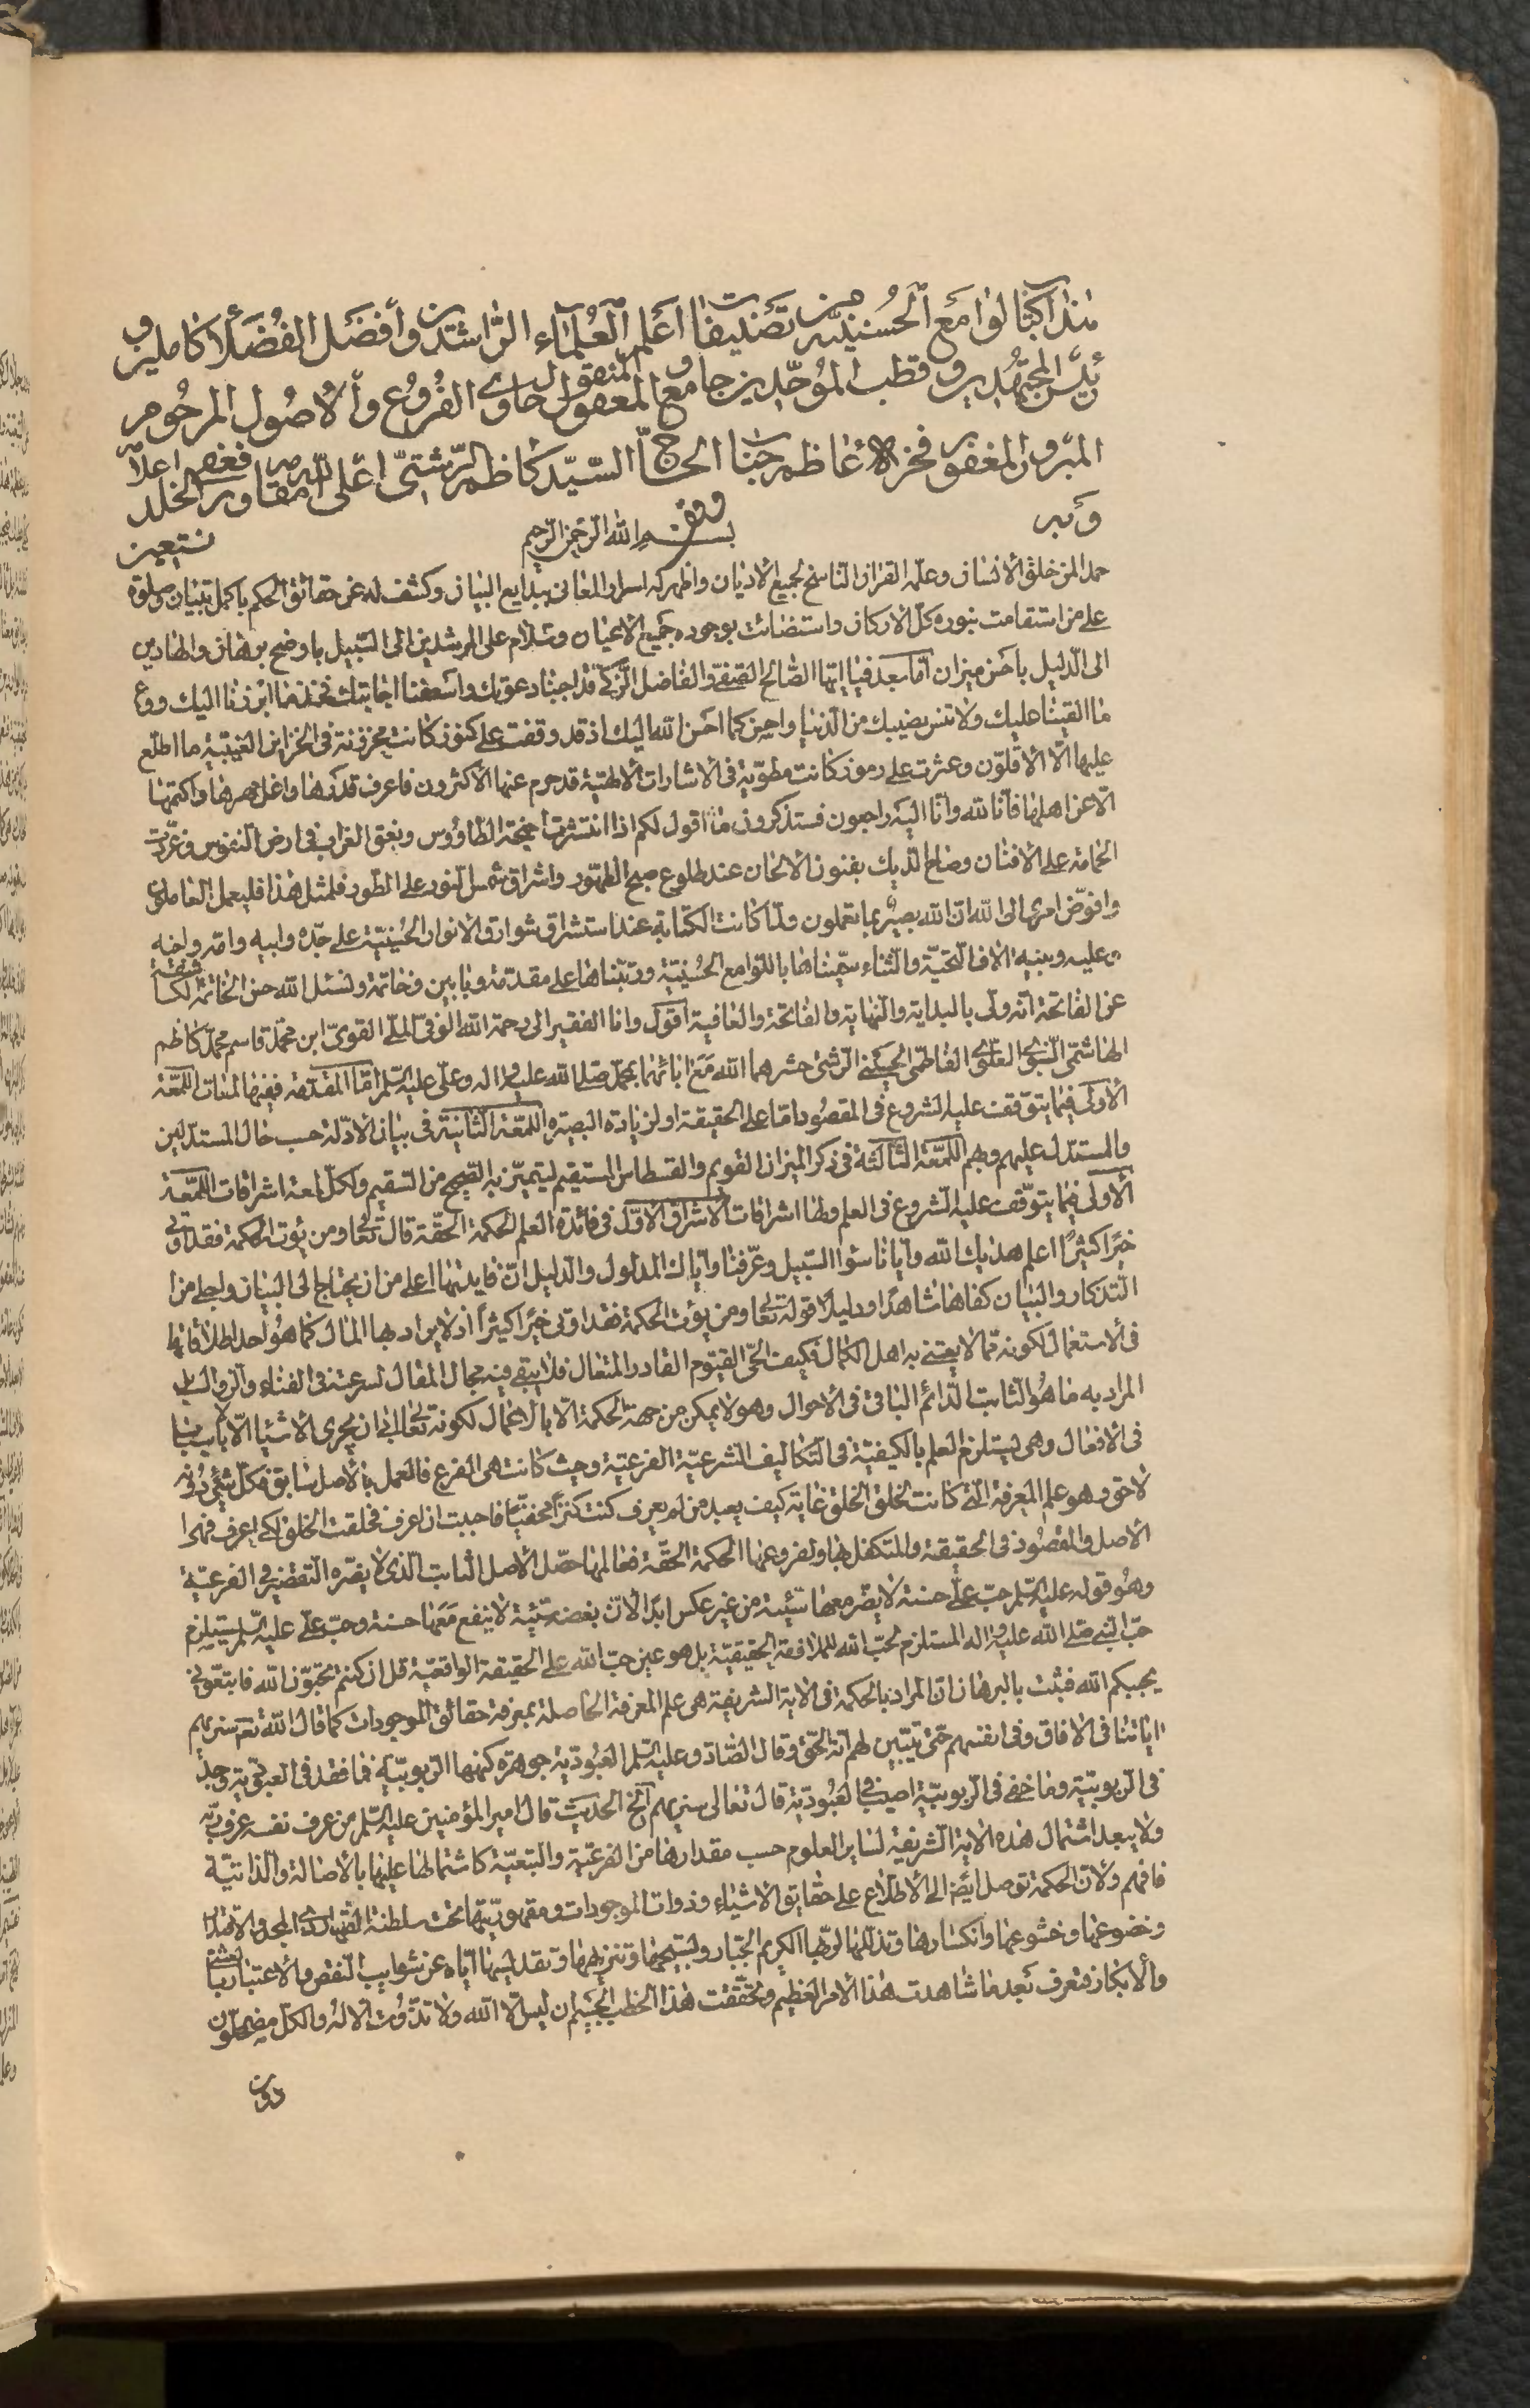 هذا كتاب لوامع الحسينية من تصنيفات اعلم العلماء الراشدين وافضل الفضلاء كاملين و
رئيس المجتهدين و قطب الموحدين جامع المعقول و المنقول حاوى الفروع والاصول المرحوم
المبرور المغفور فخر الاعاظم جناب الحاج السيد كاظم الرشتى اعلى الله مقامه ورفع فى الخلد اعلامه
وبه بسم الله الرحمن الرحيم نستعين
حمدا لمن خلق الانسان وعلمه القران الناسخ لجميع الاديان واظهر له اسرار المعانى ببدايع البيان وكشف له عن حقائق الحكم باكمل تبيان وصلوة
على من استقامت بنوره كل الاركان واستضائت بوجوده جميع الاعيان وسلام على المرشدين الى السبيل باوضح برهان والهادين
الى الدليل باحسن ميزان اما بعد فيا ايها الصالح الصفى والفاضل الزكى قد اجبنا دعوتك واسعفنا اجابتك فخذ ما ابرزنا اليك ووع
ما القينا عليك ولا تنس نصيبك من الدنيا واحسن كما احسن الله اليك اذ قد وقفت على كنوز كانت مخزونة فى الخزاين الغيبية ما اطلع
عليها الا الاقلون وعثرت على رموز كانت مطوية فى الاشارات الالهية قد حرم عنها الاكثرون فاعرف قدرها واغل مهرها واكتمها
الا عن اهلها فانا لله وانا اليه راجعون فستذكرون ما اقول لكم اذا انتشرت اجنحة الطاووس ونغق الغراب فى ارض النفوس وغردت
الحمامة على الافنان وصاح الديك بفنون الالحان عند طلوع صبح الظهور واشراق شمس النور على الطور فلمثل هذا فليعمل العاملون
وافوض امرى الى الله ان الله بصير بما تعملون ولما كانت الكتابة عند استشراق شوارق الانوار الحسينية على جده وابيه وامه واخيه
وعليه وبنيه الاف التحية والثناء سميناها باللوامع الحسينية ورتبناها على مقدمة وبابين وخاتمة ونسئل الله حسن الخاتمة
عن الفاتحة انه ولى بالبداية والنهاية والفاتحة والعافية اقول وانا الفقير الى رحمة الله الوفى الملى القوى ابن محمد قاسم محمد كاظم
الهاشمى النبوى العلوى الفاطمى الحسينى الرشتى حشرهما الله مع ابائهما بمحمد صلى الله عليه واله وعلى عليه السلم اما المقدمة ففيها لمعات اللمعة
الاولى فيما يتوقف عليه الشروع فى المقصود اما على الحقيقة او لزيادة البصيرة اللمعة الثانية فى بيان الادلة حسب حال المستدلين
والمستدل عليهم وبهم اللمعة الثالثة فى ذكر الميزان القويم والقسطاس المستقيم ليتميز به الصحيح من السقيم ولكل لمعة اشراقات اللمعة
الاولى فيما يتوقف عليه الشروع فى العلم ولها اشراقات الاشراق الاول فى فائدة العلم لحكمة الحقة قال تعالى ومن يؤت الحكمة فقد اوتى
خيرا كثيرا اعلم هديك الله وايانا سواء السبيل وعرفنا واياك المدلول والدليل ان فايدتها اعلى من ان يحتاج الى البيان واجلى من
التذكار والتبيان كفاها شاهدا ودليلا قوله تعالى ومن يؤت الحكمة فقد اوتى خيرا كثيرا اذ لا يراد بها المال كما هو احد اطلاقاتها
فى الاستعمال لكونه مما لا يعتنى به اهل الكمال فكيف الحى القيوم القادر المتعال فلا يبقى فيه مجال المقال لسرعته فى الفناء والزوال بل
المراد به ما هو الثابت الدائم الباقى فى الاحوال وهو لا يمكن من جهة الحكمة الا بالاعمال لكونه تعالى ابى ان يجرى الاشياء الا باسبابها
فى الافعال وهى يستلزم العلم بالكيفية فى التكاليف الشرعية الفرعية وحيث كانت هى الفرع فالعمل بالاصل سابق فكل شئ دونه
لاحق وهو علم المعرفة التى كانت لخلق الخلق غاية كيف يعبد من لم يعرف كنت كنزا مخفيا فاحببت ان اعرف فخلقت الخلق لكى اعرف فهذا
الاصل والمقصود فى الحقيقة والمتكفل لها ولفروعها الحكمة الحقة فعالمها حصل الاصل الثابت الذى لا يضره التقصير فى الفرعية
وهو قوله عليه السلم حب على حسنة لا يضر معها سيئة من غير عكس ابدا لان بغضه سيئة لا ينفع معها حسنة وحب على عليه السلم يستلزم
حب النبى صلى الله عليه واله المستلزم لحب الله للملازمة الحقيقية بل هو عين حب الله على الحقيقة الواقعية قل ان كنتم تحبون الله فاتبعونى
يحببكم الله فثبت بالبرهان ان المراد بالحكمة فى الاية الشريفة هى علم المعرفة الحاصلة بمعرفة حقائق الموجودات كما قال الله تعم سنريهم
اياتنا فى الافاق وفى انفسهم حتى يتبين لهم انه الحق وقال الصادق عليه السلم العبودية جوهرة كنهها الربوبية فما فقد فى العبودية وجد
فى الربوبية وما خفى فى الربوبية اصيب فى العبودية قال تعالى سنريهم الخ الحديث قال امير المؤمنين عليه السلم من عرف نفسه عرف ربه
ولا يبعد اشتمال هذه الاية الشريفة لساير العلوم حسب مقدارها من الفرعية والتبعية كاشتمالها عليها بالاصالة والذاتية
فافهم ولان الحكمة توصل ايضا الى الاطلاع على حقايق الاشياء وذوات الموجودات ومقهوريتها تحت سلطنة القهار
وخضوعها وخشوعها وانكسارها وتذللها لربها الكريم الجبار وتسبيحها وتنزيهها وتقديسها اياه عن شوايب النقص والاعتبار بالعشى
والابكار فتعرف بعد ما شاهدت هذا الامر العظيم وتحققت هذا الخطب الجسيم ان ليس الا الله ولا تذوت الا له والكل مضمحلون
دون